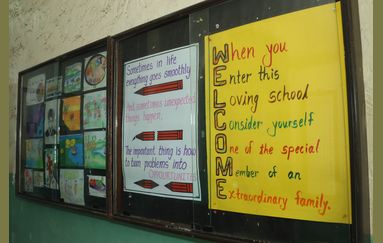 Sometimes in life
everything goes smoothly
And, sometimes unexpected
things happen,
The important, thing is how
to turn problems into
OPPORTUNITIES
When you
Enter this
Loving school
Consider yourself
One of the special
Member of an
Extraordinary family.